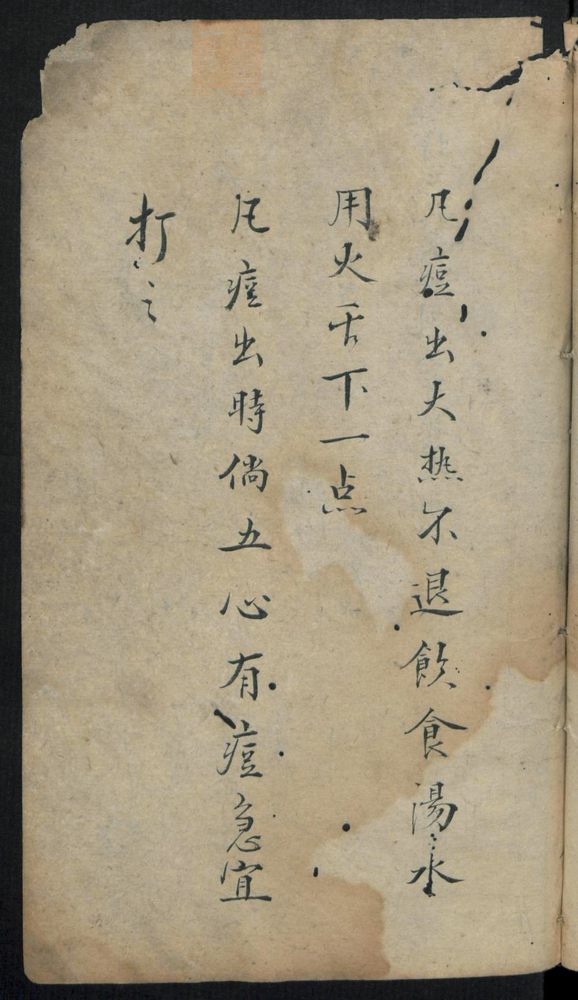 凡痘出大热不退飲食湯水
用火舌下一点
凡痘出時倘五心有痘急宜
打之